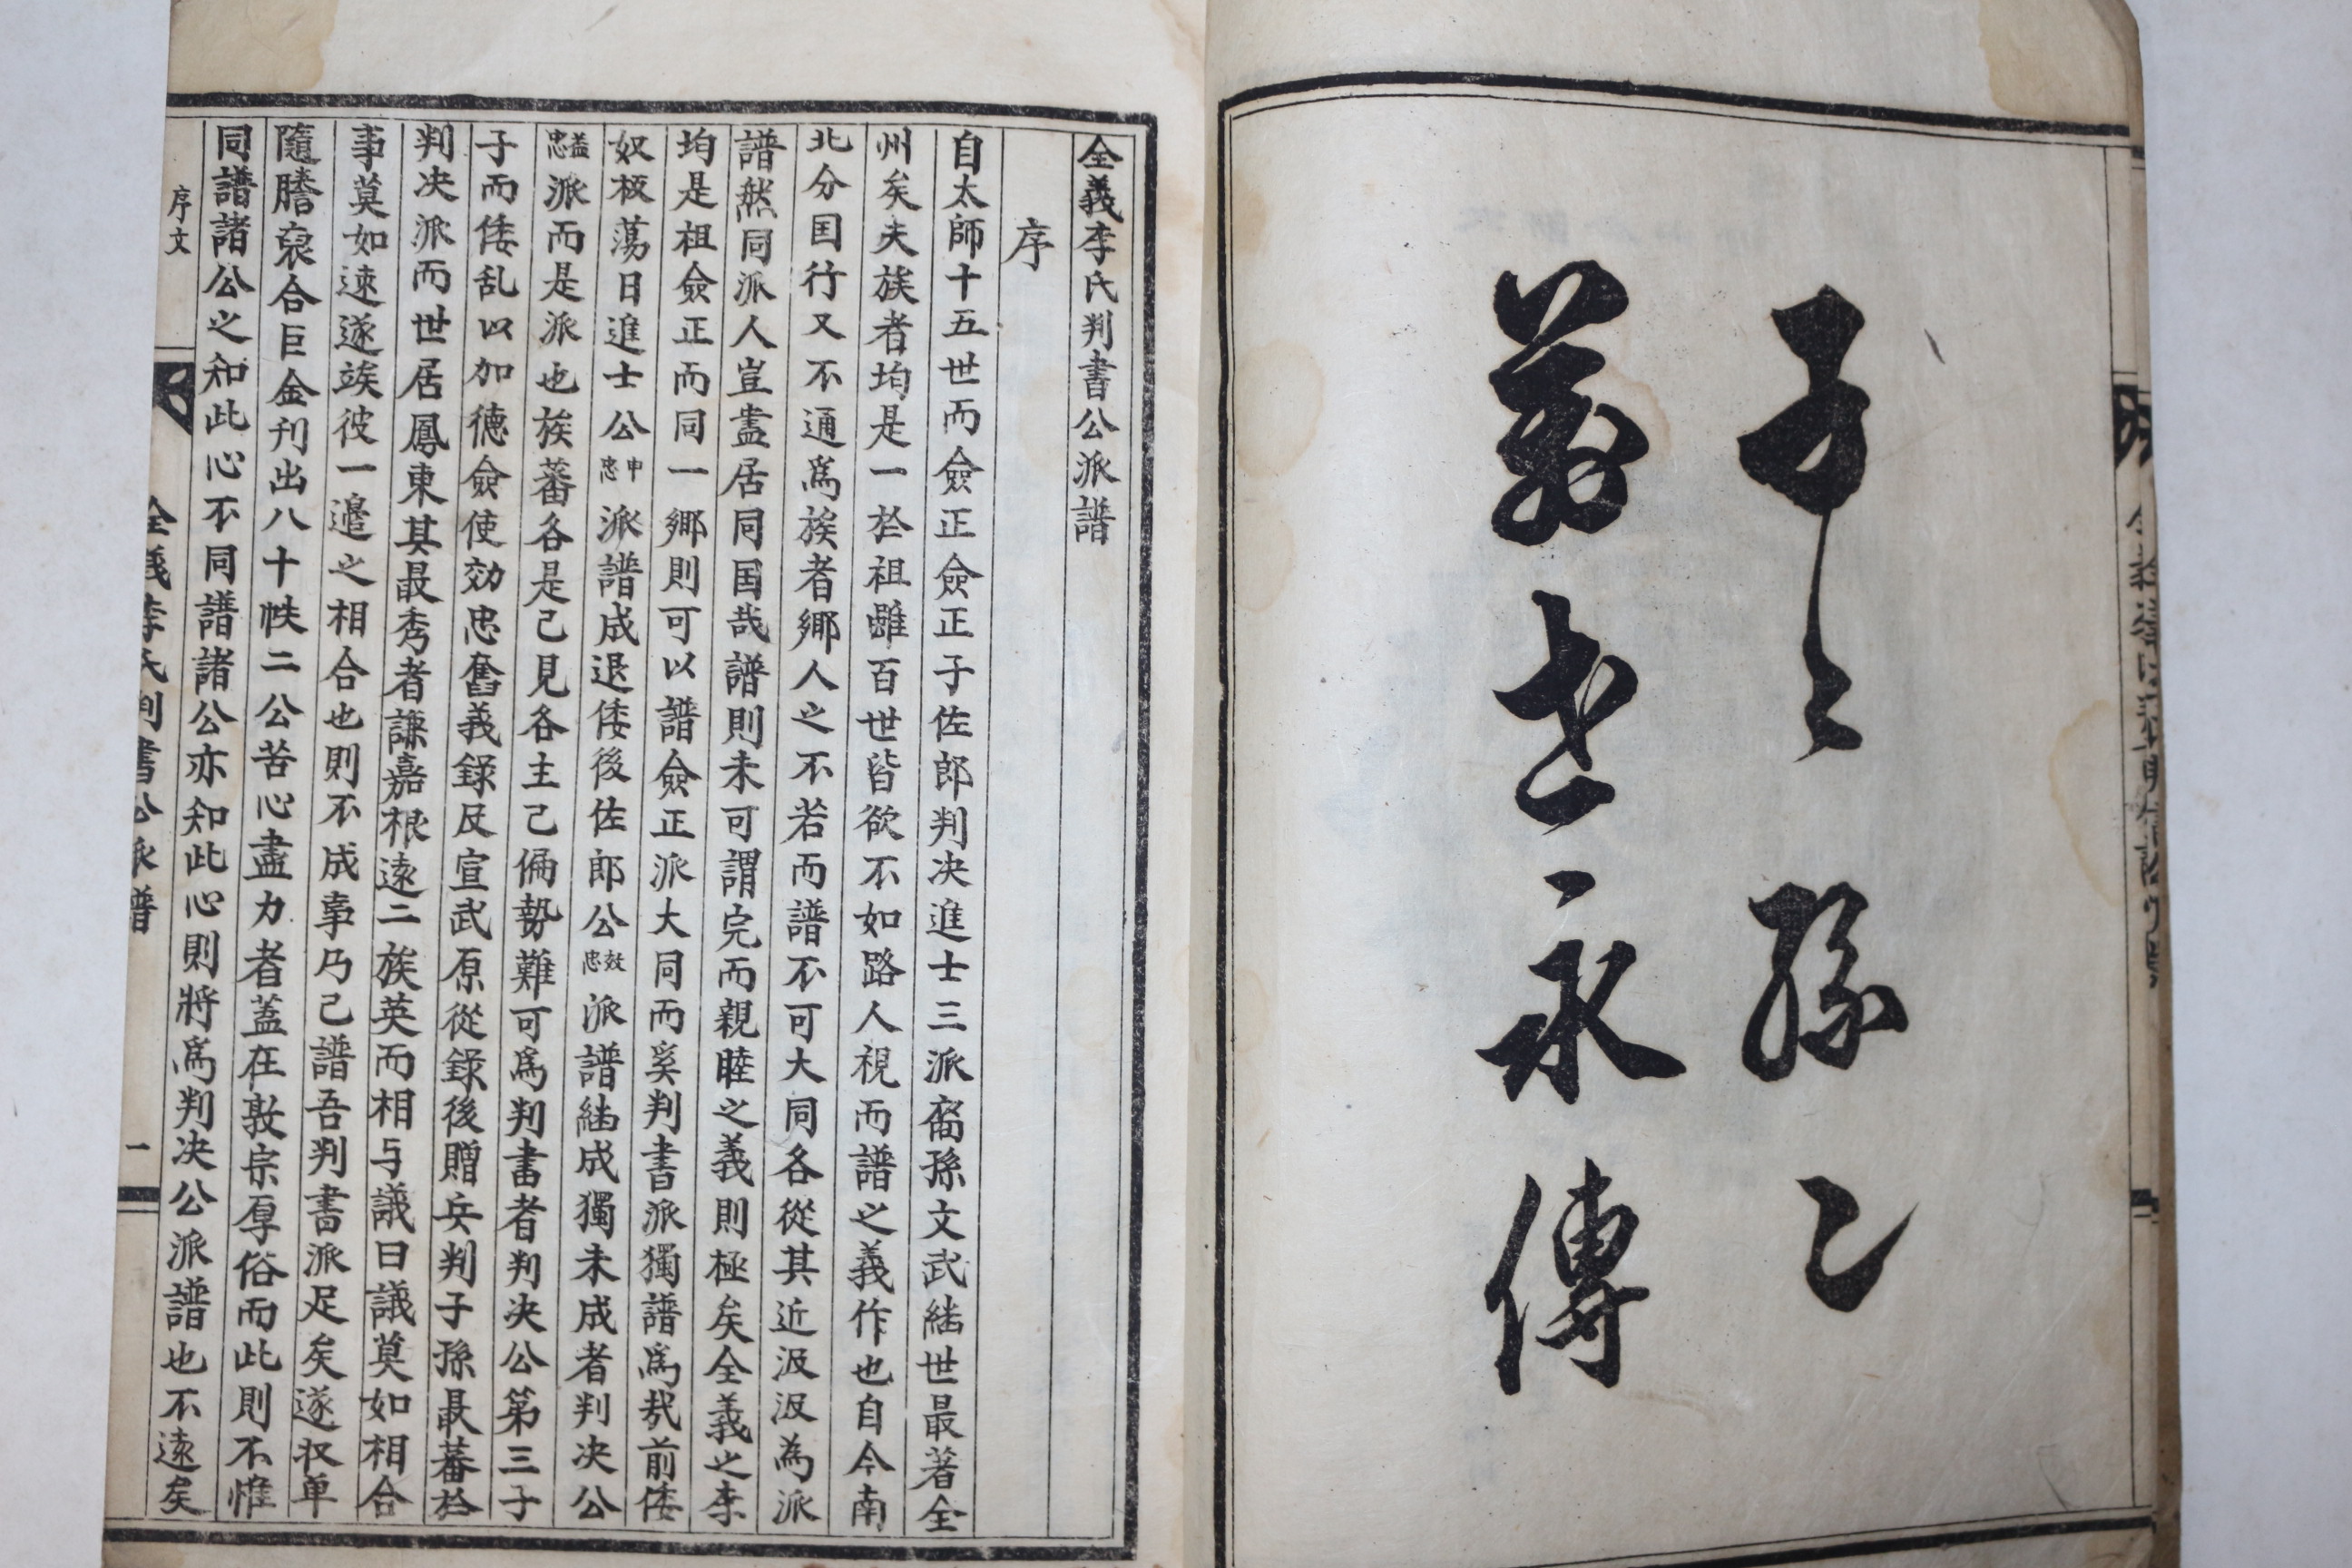 子〻孫〻
萬世永傳
全義李氏判書公派譜
序
自太師十五世而僉正僉正子佐郎判决進士三派裔孫文武継世最著全
州矣夫族者均是一於祖雖百世皆欲不如路人視而譜之義作也自今南
北分国行又不通爲族者鄉人之不若而譜不可大同各從其近汲汲為派
譜然同派人豈盡居同国哉譜則未可謂完而親睦之義則極矣全義之李
均是祖僉正而同一鄉則可以譜僉正派大同而奚判書派獨譜爲哉前倭
奴板蕩日進士公申忠派譜成退倭後佐郎公效忠派譜継成獨未成者判决公
益忠派而是派也族蕃各是己見各主己偏勢難可爲判書者判决公第三子
子而倭乱以加德僉使効忠奮義錄反宣武原從錄後贈兵判子孫最蕃於
判决派而世居鳳東其最秀者謙嘉根遠二族英而相与議曰議莫如相合
事莫如速遂竢彼一邊之相合也則不成事乃己譜吾判書派足矣遂収单
隨謄裒合巨金刊出八十帙二公苦心盡力者蓋在敦宗厚俗而此則不惟
同譜諸公之知此心不同譜諸公亦知此心則將爲判决公派譜也不遠矣
序文
全義李氏判書公派譜
一